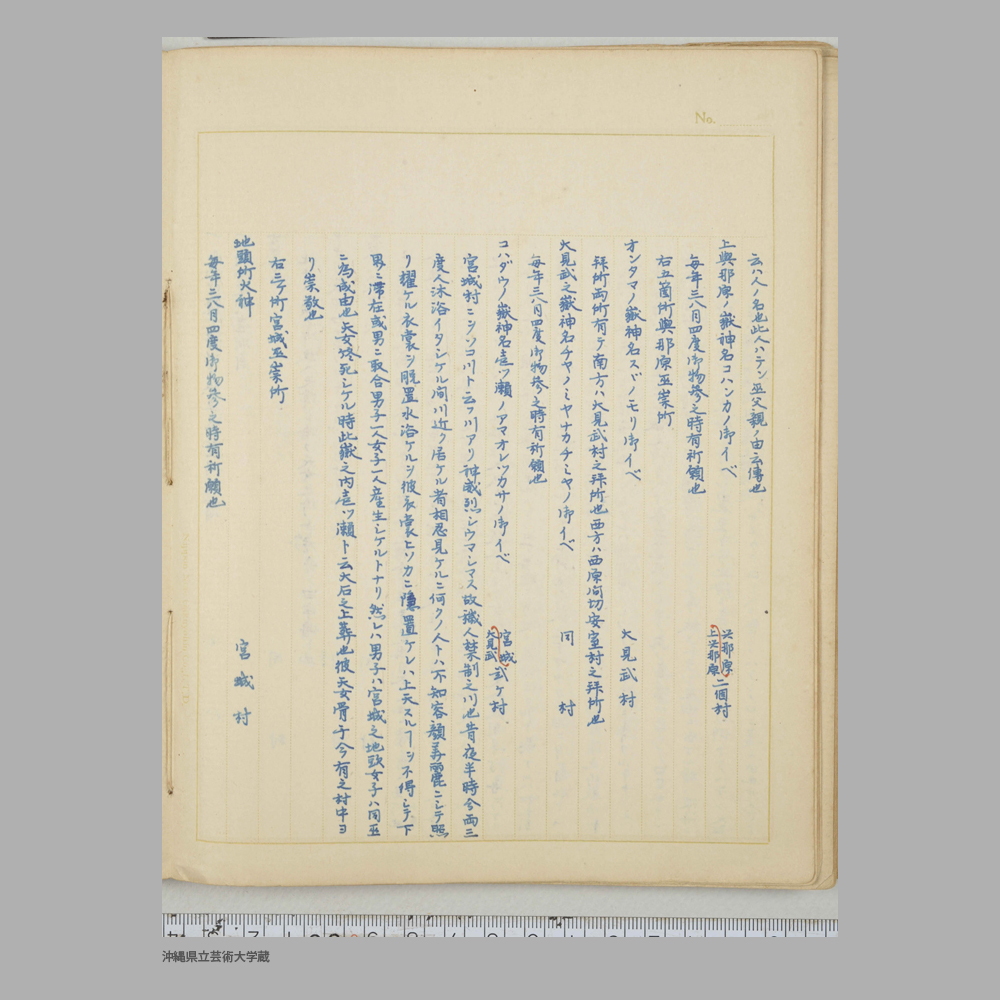 No.
云ハ人ノ名也此人ハテン巫父親ノ由云傳也
上與那原ノ嶽神名コハンカノ御イベ
与那原
上与那原
二個村
毎年三八月四度御物參之時有祈願也
右五箇所與那原巫崇所
オンタマノ嶽神名スヾノモリ御イベ
大見武村
拜所両所有テ南方ハ大見武村之拜所也西方ハ西原間切安室村之拜所也
大見武之嶽神名チヤノミヤナカチミヤノ御イベ
同村
毎年三八月四度御物參之時有祈願也
コハダウノ嶽神名壹ツ瀬ノアマオレツカサノ御イベ
宮城
大見武
弐ケ村
宮城村ニシソコ川ト云フ川アリ神威烈シウマシマス故穢人禁制之川也昔夜半時分両三
度人沐浴イタシケル間川近ク居ケル者相忍見ケルニ何クノ人トハ不知容顔美麗ニシテ照
リ耀ケル衣裳ヲ脱置水浴ケルヲ彼衣裳ヒソカニ隱置ケレハ上天スルヿヲ不得シテ下
界ニ滞在或男ニ取合男子一人女子一人産生シケルトナリ然レハ男子ハ宮城之地頭女子ハ同巫
ニ為成由也天女終死シケル時此嶽之内壹ツ瀬ト云大石之上葬也彼天女骨于今有之村中ヨ
リ崇敬也
右三ケ所宮城巫崇所
地頭所火神
宮城村
毎年三八月四度御物參之時有祈願也
沖縄県立芸術大学蔵